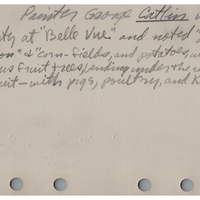 Painter George Catlin
at "Belle Vue" and noted
" & "corn-fields, and potatoes,
fruit trees, bending under the
- with pigs, poultry, and